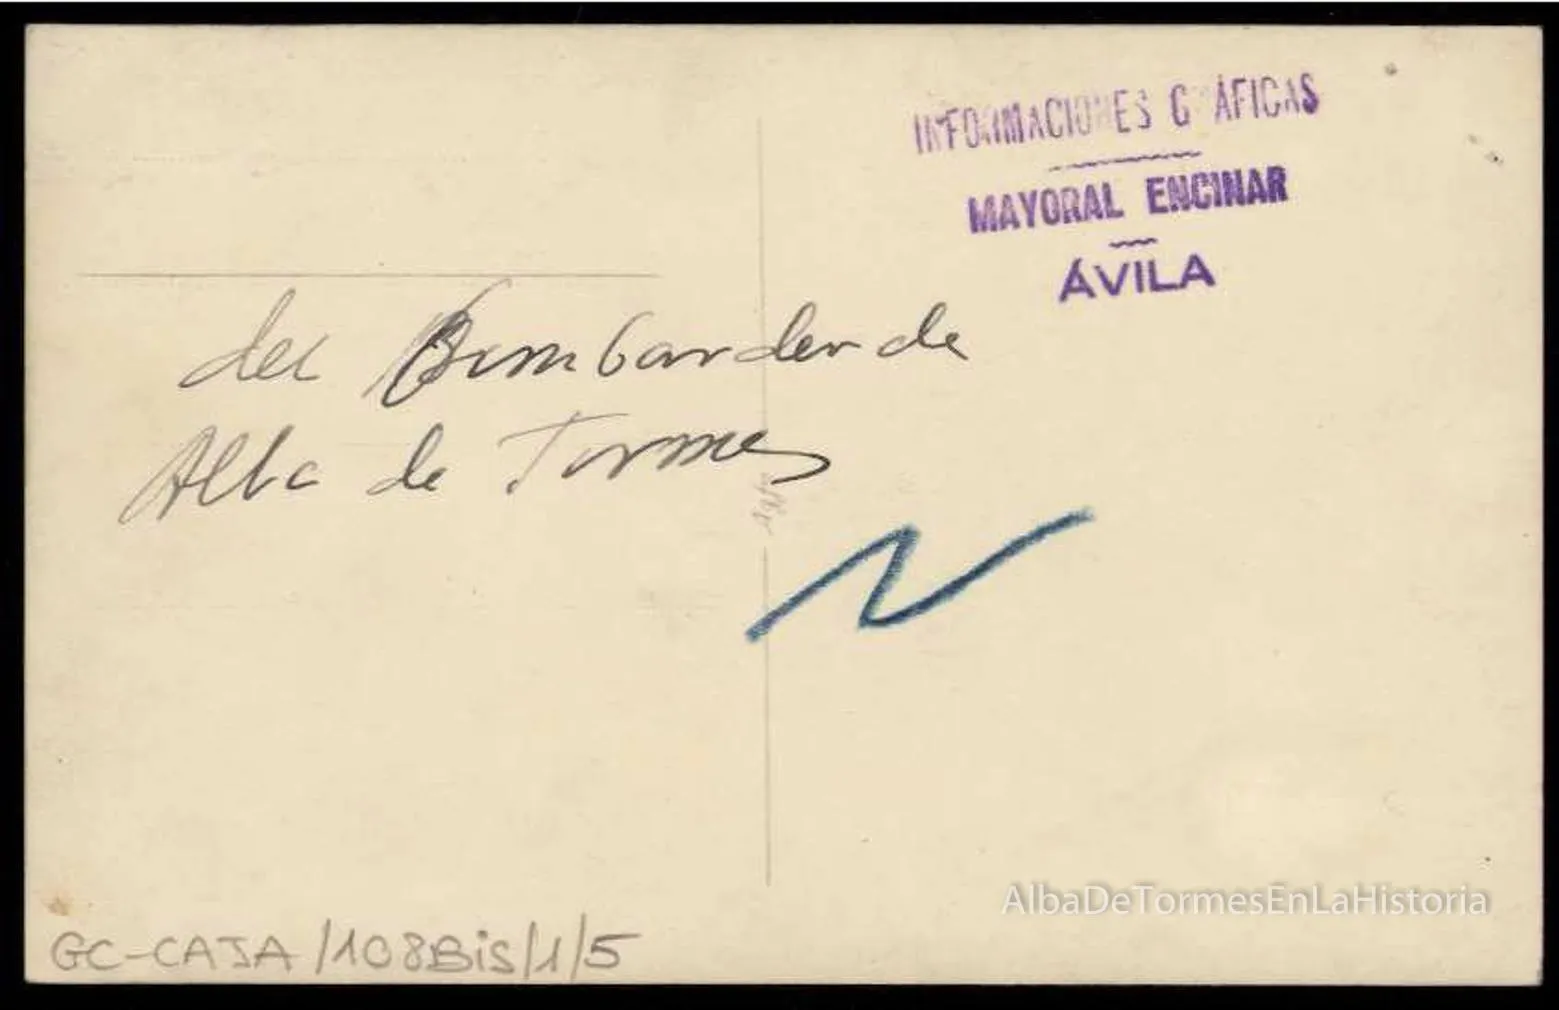 INFORMACIONES GRÁFICAS
MAYORAL ENCINAR
ÁVILA
del Bombardeo de
Alba de Tormes
AlbaDeTormesEnLaHistoria
GC-CAJA/108Bis/1/5